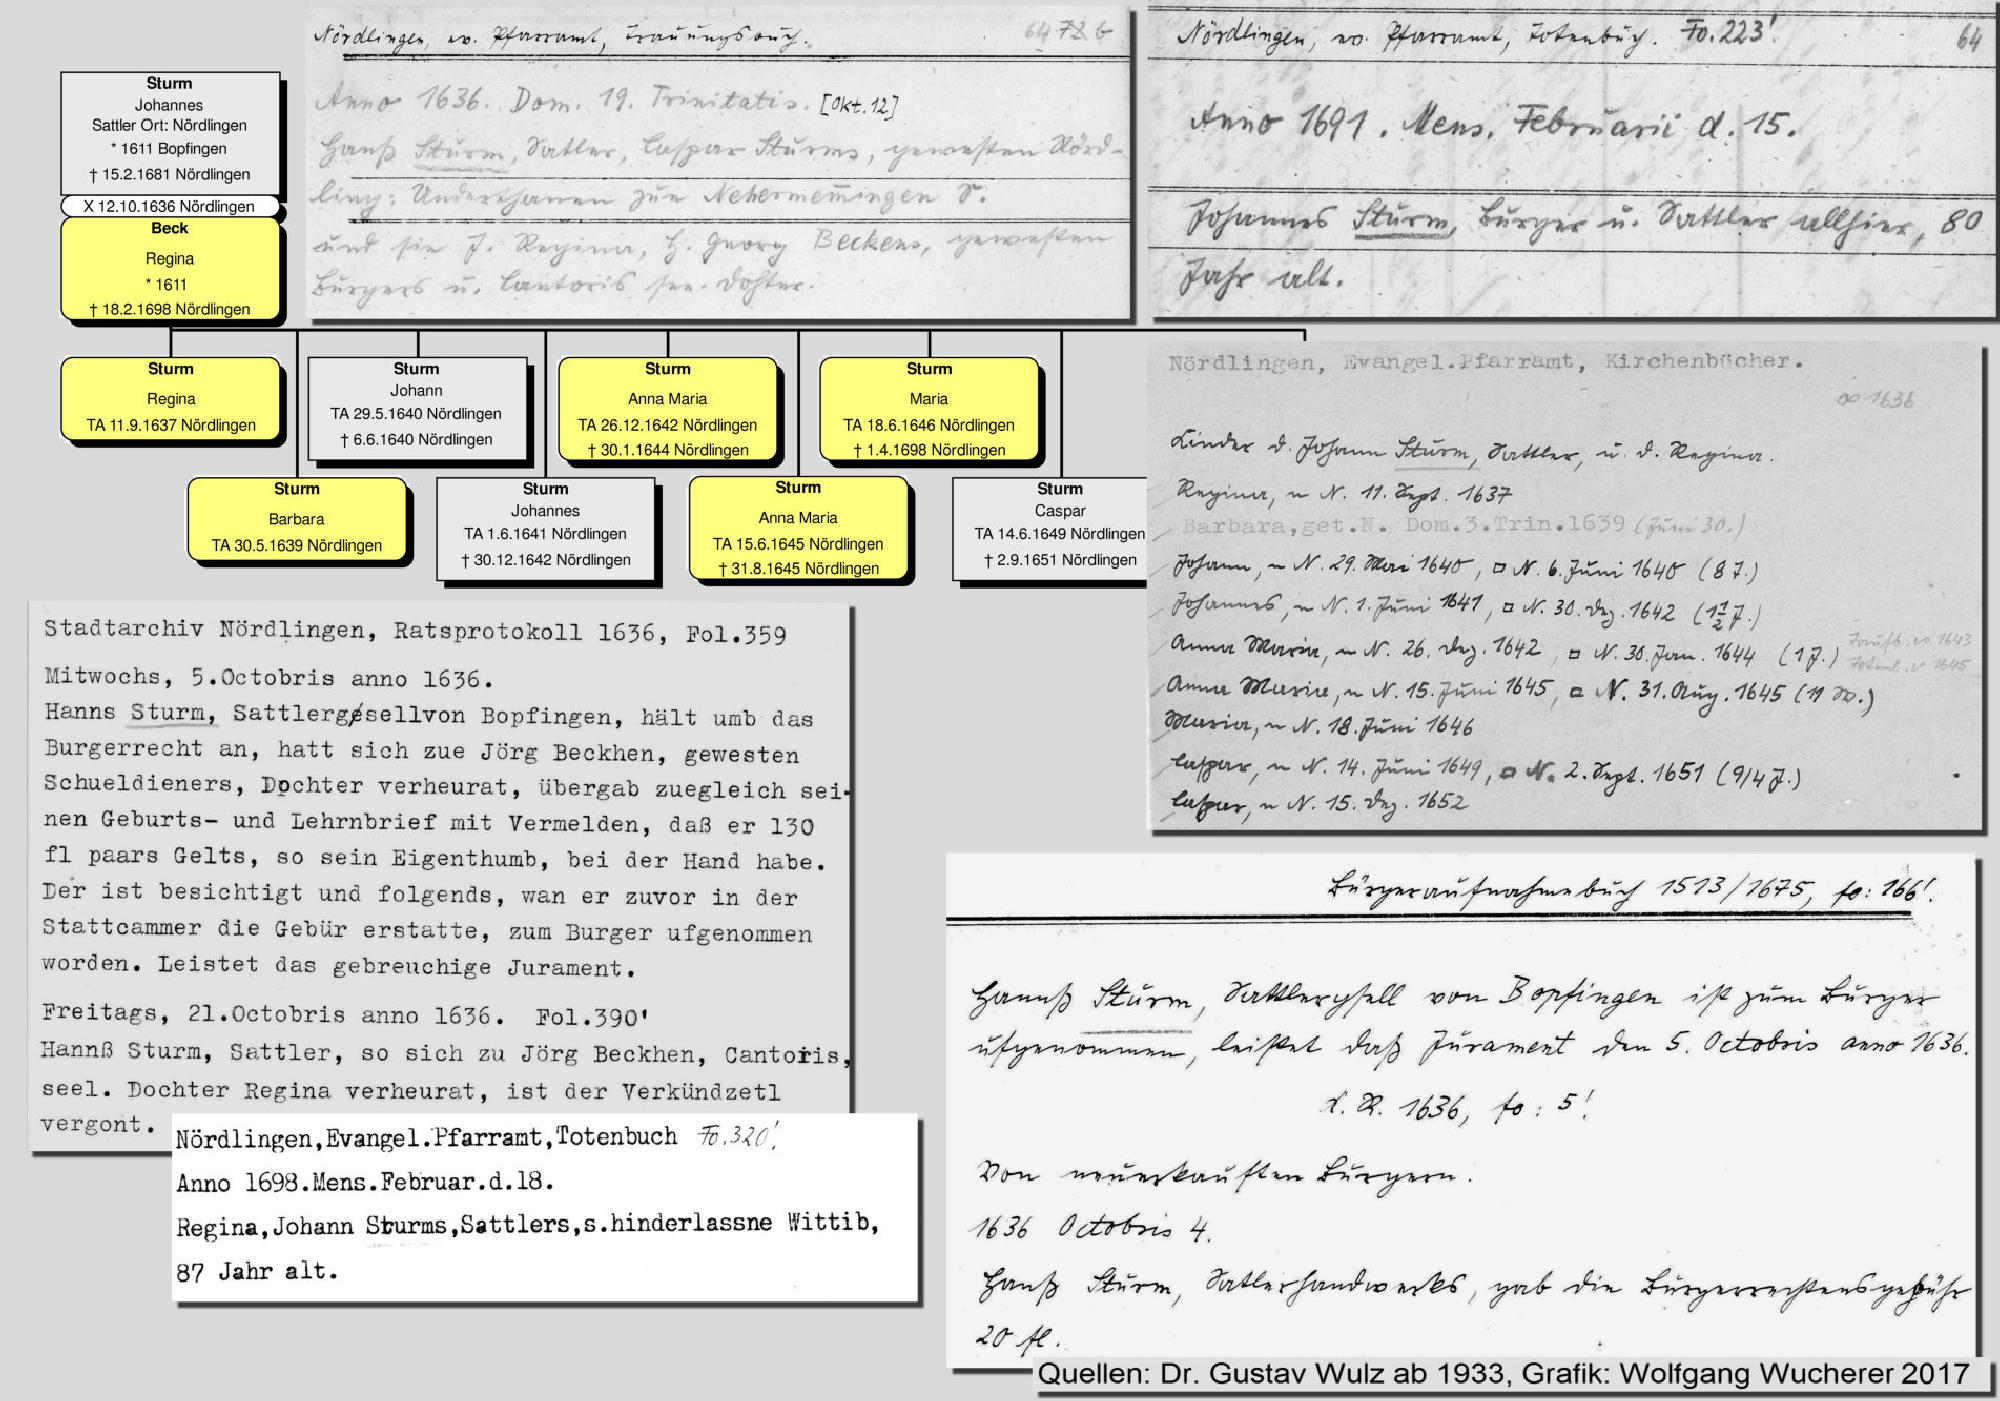 Sturm
Johannes
Sattler Ort: Nördlingen
* 1611 Bopfingen
† 15.2.1681 Nördlingen
X 12.10.1636 Nördlingen
Beck
Regina
* 1611
† 18.2.1698 Nördlingen
Nördlingen, ev. Pfarramt, Trauungsbuch. 64 72 b
Anno 1636. Dom. 19. Trinitatis. [Okt. 12]
Hanß Sturm, Satler, Caspar Sturms, gewesten Nörd-
ling: Underthanen zue Nehermemmingen S.
und sie J. Regina, H. Georg Beckens, gewesten
Burgers u. Cantoris see. Dohter.
Nördlingen, ev. Pfarramt, Totenbuch. Fo. 223' 64
Anno 1691. Mens. Februarii d. 15.
Johannes Sturm, Burger u. Sattler allhier, 80
Jahr alt.
Sturm
Regina
TA 11.9.1637 Nördlingen
Sturm
Johann
TA 29.5.1640 Nördlingen
† 6.6.1640 Nördlingen
Sturm
Anna Maria
TA 26.12.1642 Nördlingen
† 30.1.1644 Nördlingen
Sturm
Maria
TA 18.6.1646 Nördlingen
† 1.4.1698 Nördlingen
Sturm
Barbara
TA 30.5.1639 Nördlingen
Sturm
Johannes
TA 1.6.1641 Nördlingen
† 30.12.1642 Nördlingen
Sturm
Anna Maria
TA 15.6.1645 Nördlingen
† 31.8.1645 Nördlingen
Sturm
Caspar
TA 14.6.1649 Nördlingen
† 2.9.1651 Nördlingen
Nördlingen, Evangel.Pfarramt, Kirchenbücher.
∞ 1636
Kinder d. Johann Sturm, Sattler, u. d. Regina.
Regina, ~ N. 11. Sept. 1637
Barbara,get.N. Dom.3.Trin.1639 (Juni 30.)
Johann, ~ N. 29. Mai 1640, □ N. 6. Juni 1640 (8 T.)
Johannes, ~ N. 1. Juni 1641, □ N. 30. Dez. 1642 (1½ J.)
Anna Maria, ~ N. 26. Dez. 1642, □ N. 30. Jan. 1644 (1 J.)
1643
1645
Anna Maria, ~ N. 15. Juni 1645, □ N. 31. Aug. 1645 (11 W.)
Maria, ~ N. 18. Juni 1646
Caspar, ~ N. 14. Juni 1649, □ N. 2. Sept. 1651 (9/4 J.)
Caspar, ~ N. 15. Dez. 1652
Stadtarchiv Nördlingen, Ratsprotokoll 1636, Fol.359
Mitwochs, 5.Octobris anno 1636.
Hanns Sturm, Sattlergesellvon Bopfingen, hält umb das
Burgerrecht an, hatt sich zue Jörg Beckhen, gewesten
Schueldieners, Dochter verheurat, übergab zuegleich sei-
nen Geburts- und Lehrnbrief mit Vermelden, daß er 130
fl paars Gelts, so sein Eigenthumb, bei der Hand habe.
Der ist besichtigt und folgends, wan er zuvor in der
Stattcammer die Gebür erstatte, zum Burger ufgenommen
worden. Leistet das gebreuchige Jurament.
Freitags, 21.Octobris anno 1636. Fol.390'
Hannß Sturm, Sattler, so sich zu Jörg Beckhen, Cantoris,
seel. Dochter Regina verheurat, ist der Verkündzetl
vergont.
Nördlingen,Evangel.Pfarramt,Totenbuch Fo.320'.
Anno 1698.Mens.Februar.d.18.
Regina,Johann Sturms,Sattlers,s.hinderlassne Wittib,
87 Jahr alt.
Bürgeraufnahmebuch 1513/1675, fo: 166'.
Hannß Sturm, Sattlergsell von Bopfingen ist zum Burger
ufgenommen, leistet daß Jurament den 5. Octobris anno 1636.
1636, fo: 5'.
Von neuerkauften Burgern.
1636 Octobris 4.
Hanß Sturm, Satlerhandwerks, gab die Burgerrechtensgebühr
20 fl.
Quellen: Dr. Gustav Wulz ab 1933, Grafik: Wolfgang Wucherer 2017